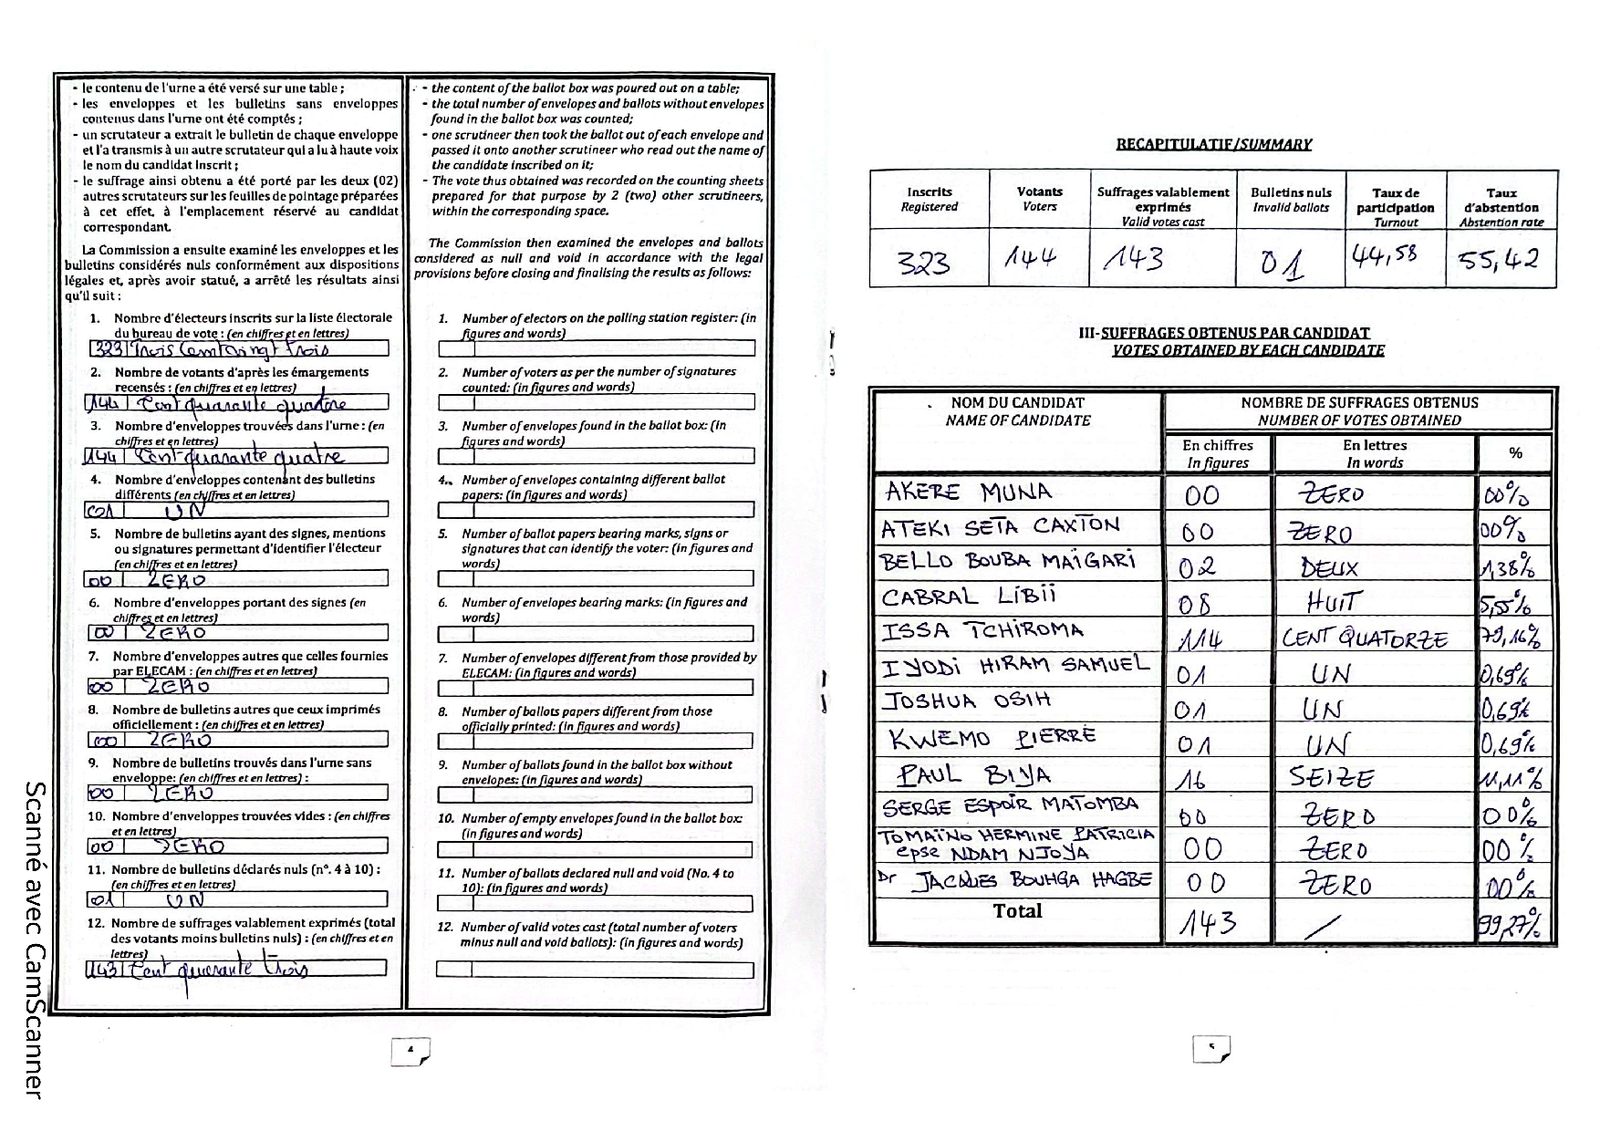 - le contenu de l'urne a été versé sur une table ;
- les enveloppes et les bulletins sans enveloppes
contenus dans l'urne ont été comptés ;
- un scrutateur a extrait le bulletin de chaque enveloppe
et l'a transmis à un autre scrutateur qui a lu à haute voix
le nom du candidat inscrit ;
- le suffrage ainsi obtenu a été porté par les deux (02)
autres scrutateurs sur les feuilles de pointage préparées
à cet effet, à l'emplacement réservé au candidat
correspondant.
La Commission a ensuite examiné les enveloppes et les
bulletins considérés nuls conformément aux dispositions
légales et, après avoir statué, a arrêté les résultats ainsi
qu'il suit :
1. Nombre d'électeurs inscrits sur la liste électorale
du bureau de vote : (en chiffres et en lettres)
323 Trois Cent vingt trois
2. Nombre de votants d'après les émargements
recensés : (en chiffres et en lettres)
144 Cent quarante quatre
3. Nombre d'enveloppes trouvées dans l'urne : (en
chiffres et en lettres)
144 Cent quarante quatre
4. Nombre d'enveloppes contenant des bulletins
différents (en chiffres et en lettres)
01 UN
5. Nombre de bulletins ayant des signes, mentions
ou signatures permettant d'identifier l'électeur
(en chiffres et en lettres)
00 ZERO
6. Nombre d'enveloppes portant des signes (en
chiffres et en lettres)
00 ZERO
7. Nombre d'enveloppes autres que celles fournies
par ELECAM : (en chiffres et en lettres)
00 ZERO
8. Nombre de bulletins autres que ceux imprimés
officiellement : (en chiffres et en lettres)
00 ZERO
9. Nombre de bulletins trouvés dans l'urne sans
enveloppe: (en chiffres et en lettres) :
00 ZERO
10. Nombre d'enveloppes trouvées vides : (en chiffres
et en lettres)
00 ZERO
11. Nombre de bulletins déclarés nuls (n°. 4 à 10) :
(en chiffres et en lettres)
01 UN
12. Nombre de suffrages valablement exprimés (total
des votants moins bulletins nuls) : (en chiffres et en
lettres)
143 Cent quarante trois
- the content of the ballot box was poured out on a table;
- the total number of envelopes and ballots without envelopes
found in the ballot box was counted;
- one scrutineer then took the ballot out of each envelope and
passed it onto another scrutineer who read out the name of
the candidate inscribed on it;
- The vote thus obtained was recorded on the counting sheets
prepared for that purpose by 2 (two) other scrutineers,
within the corresponding space.
The Commission then examined the envelopes and ballots
considered as null and void in accordance with the legal
provisions before closing and finalising the results as follows:
1. Number of electors on the polling station register: (in
figures and words)
2. Number of voters as per the number of signatures
counted: (in figures and words)
3. Number of envelopes found in the ballot box: (in
figures and words)
4. Number of envelopes containing different ballot
papers: (in figures and words)
5. Number of ballot papers bearing marks, signs or
signatures that can identify the voter: (in figures and
words)
6. Number of envelopes bearing marks: (in figures and
words)
7. Number of envelopes different from those provided by
ELECAM: (in figures and words)
8. Number of ballots papers different from those
officially printed: (in figures and words)
9. Number of ballots found in the ballot box without
envelopes: (in figures and words)
10. Number of empty envelopes found in the ballot box:
(in figures and words)
11. Number of ballots declared null and void (No. 4 to
10): (in figures and words)
12. Number of valid votes cast (total number of voters
minus null and void ballots): (in figures and words)
4
Scanné avec CamScanner
RECAPITULATIF/SUMMARY
Inscrits Registered | Votants Voters | Suffrages valablement exprimés Valid votes cast | Bulletins nuls Invalid ballots | Taux de participation Turnout | Taux d'abstention Abstention rate
323 | 144 | 143 | 01 | 44,58 | 55,42
III-SUFFRAGES OBTENUS PAR CANDIDAT
VOTES OBTAINED BY EACH CANDIDATE
NOM DU CANDIDAT NAME OF CANDIDATE | NOMBRE DE SUFFRAGES OBTENUS NUMBER OF VOTES OBTAINED
En chiffres In figures | En lettres In words | %
AKERE MUNA | 00 | ZERO | 00%
ATEKI SETA CAXTON | 00 | ZERO | 00%
BELLO BOUBA MAÏGARI | 02 | DEUX | 1,38%
CABRAL LIBII | 08 | HUIT | 5,55%
ISSA TCHIROMA | 114 | CENT QUATORZE | 79,16%
IYODI HIRAM SAMUEL | 01 | UN | 0,69%
JOSHUA OSIH | 01 | UN | 0,69%
KWEMO PIERRE | 01 | UN | 0,69%
PAUL BIYA | 16 | SEIZE | 11,11%
SERGE ESPOIR MATOMBA | 00 | ZERO | 00%
TOMAÏNO HERMINE PATRICIA
epse NDAM NJOYA | 00 | ZERO | 00%
Dr JACQUES BOUHGA HAGBE | 00 | ZERO | 00%
Total | 143 | / | 99,27%
5